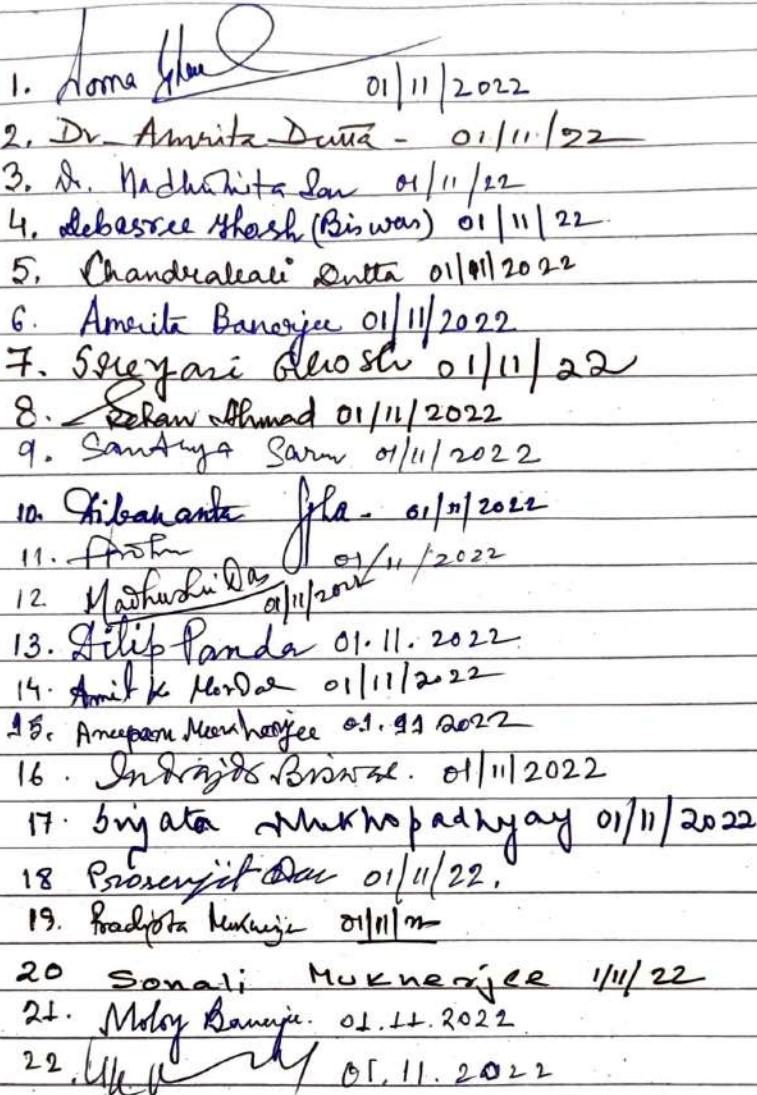 1. Soma Ghosh 01/11/2022
2. Dr. Amrita Dutta - 01/11/22
3. Dr. Madhumita Sen 01/11/22
4. Debasree Ghosh (Biswas) 01/11/22
5. Chandrakali Dutta 01/11/2022
6. Amrita Banerjee 01/11/2022
7. Sreyasi Ghosh 01/11/22
8. Rehan Ahmad 01/11/2022
9. 01/11/2022
10. Dibakanta Jha - 01/11/2022
11. 01/11/2022
12. Madhushri Das 01/11/2022
13. Dilip Panda 01.11.2022
14. Amit K Mondal 01/11/2022
15. Anupam Mukherjee 01.11 2022
16. Indrajit Biswas. 01/11/2022
17. Srijata Mukhopadhyay 01/11/2022
18 Prosenjit Das 01/11/22.
19. Pradipta Mukherjee 01/11/22
20 Sonali Mukherjee 1/11/22
21. Moloy Banerjee. 01.11.2022
22. 01.11.2022